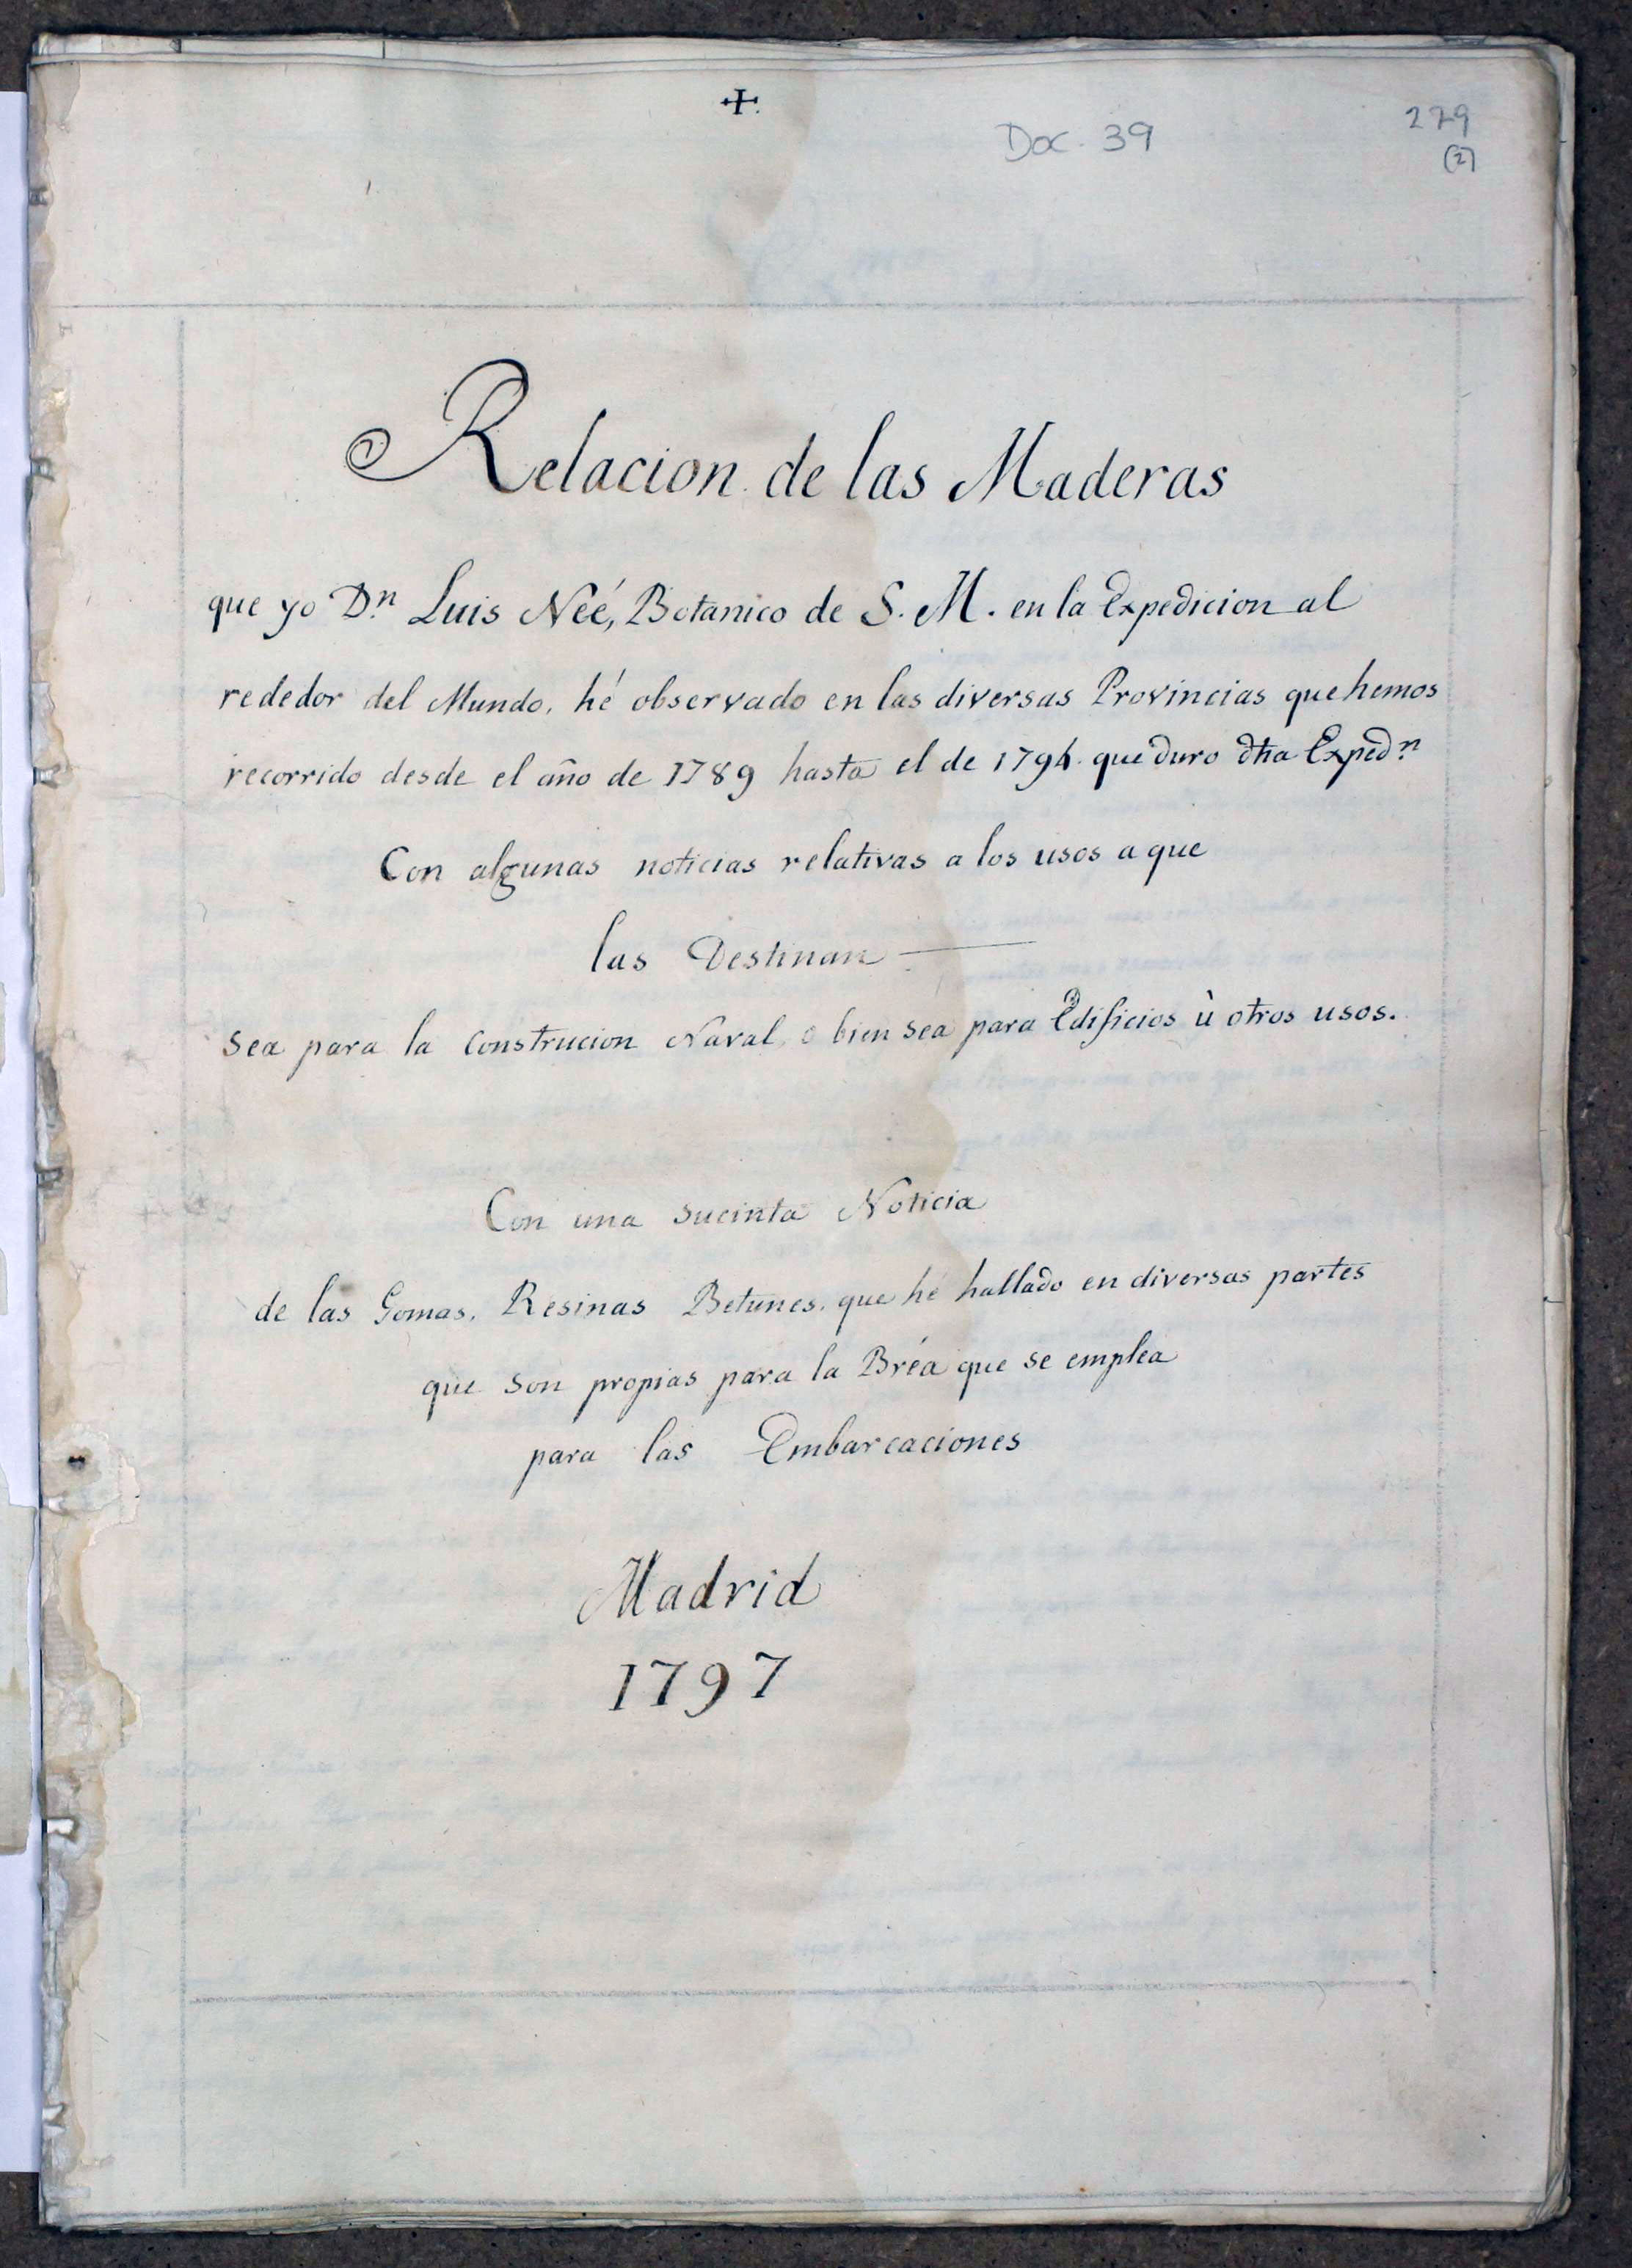 +.
Doc. 39
229
(2)
Relacion de las Maderas
que yo D.n Luis Neé, Botanico de S. M. en la Expedicion al
rededor del Mundo, hé observado en las diversas Provincias que hemos
recorrido desde el año de 1789 hasta el de 1794. que duro dha Exped.n
Con algunas noticias relativas a los usos a que
las Destinan —
Sea para la construcion Naval, o bien sea para Edificios ù otros usos.
Con una sucinta Noticia
de las Gomas, Resinas Betunes, que hé hallado en diversas partes
que son propias para la Bréa que se emplea
para las Embarcaciones
Madrid
1797